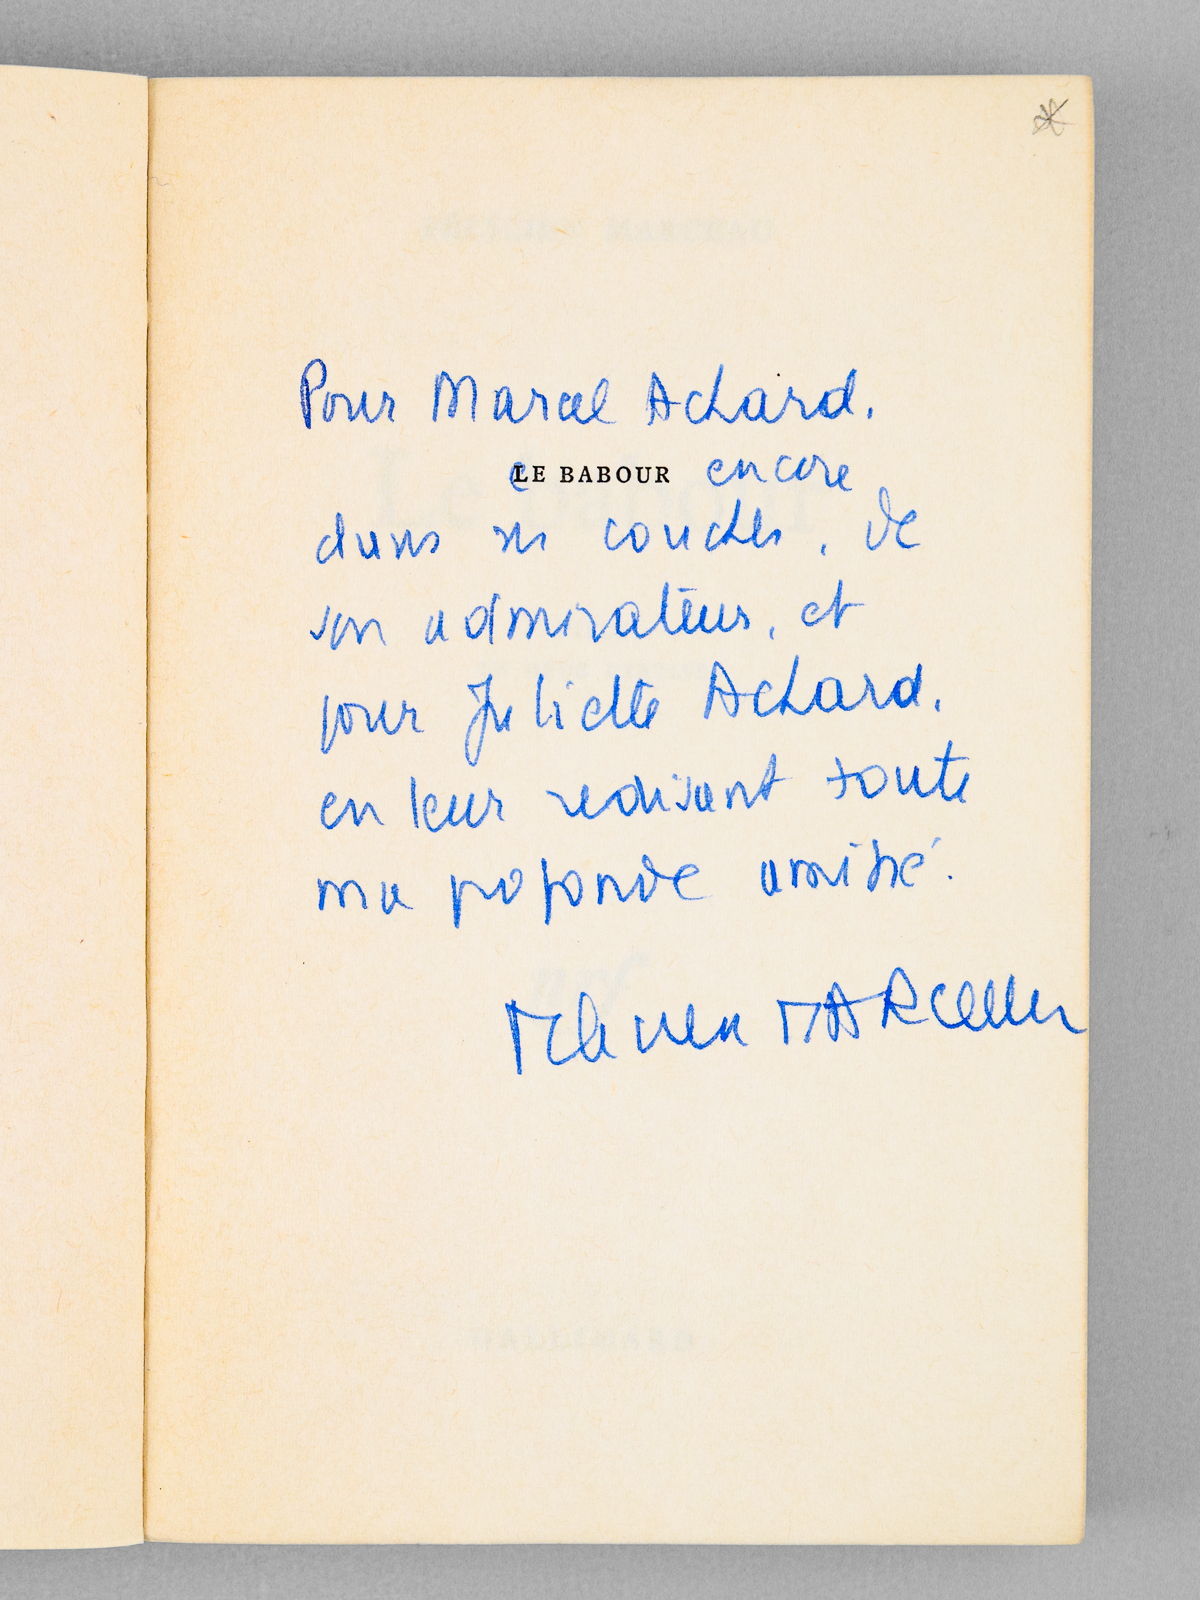 Pour Marcel Achard,
ce LE BABOUR encore
dans ses couches, de
son admirateur, et
pour Juliette Achard,
en leur redisant toute
ma profonde amitié.
Félicien MARCEAU